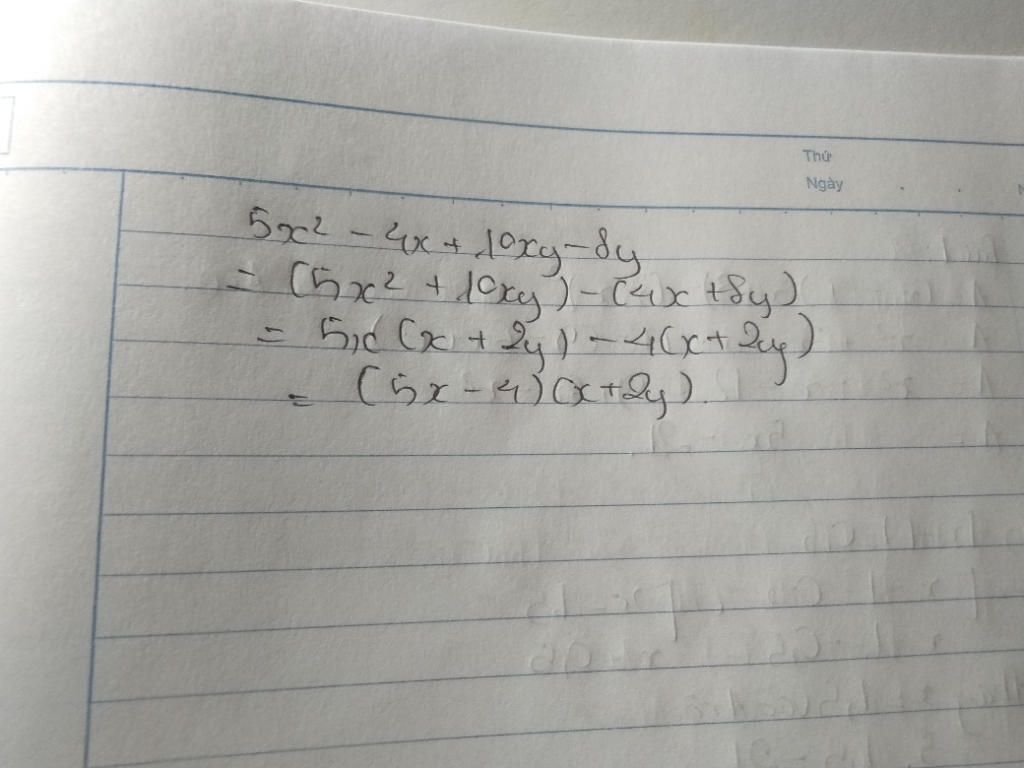 Thứ
Ngày
5x² - 4x + 10xy - 8y
= (5x² + 10xy) - (4x + 8y)
= 5x (x + 2y) - 4(x + 2y)
= (5x - 4)(x + 2y).